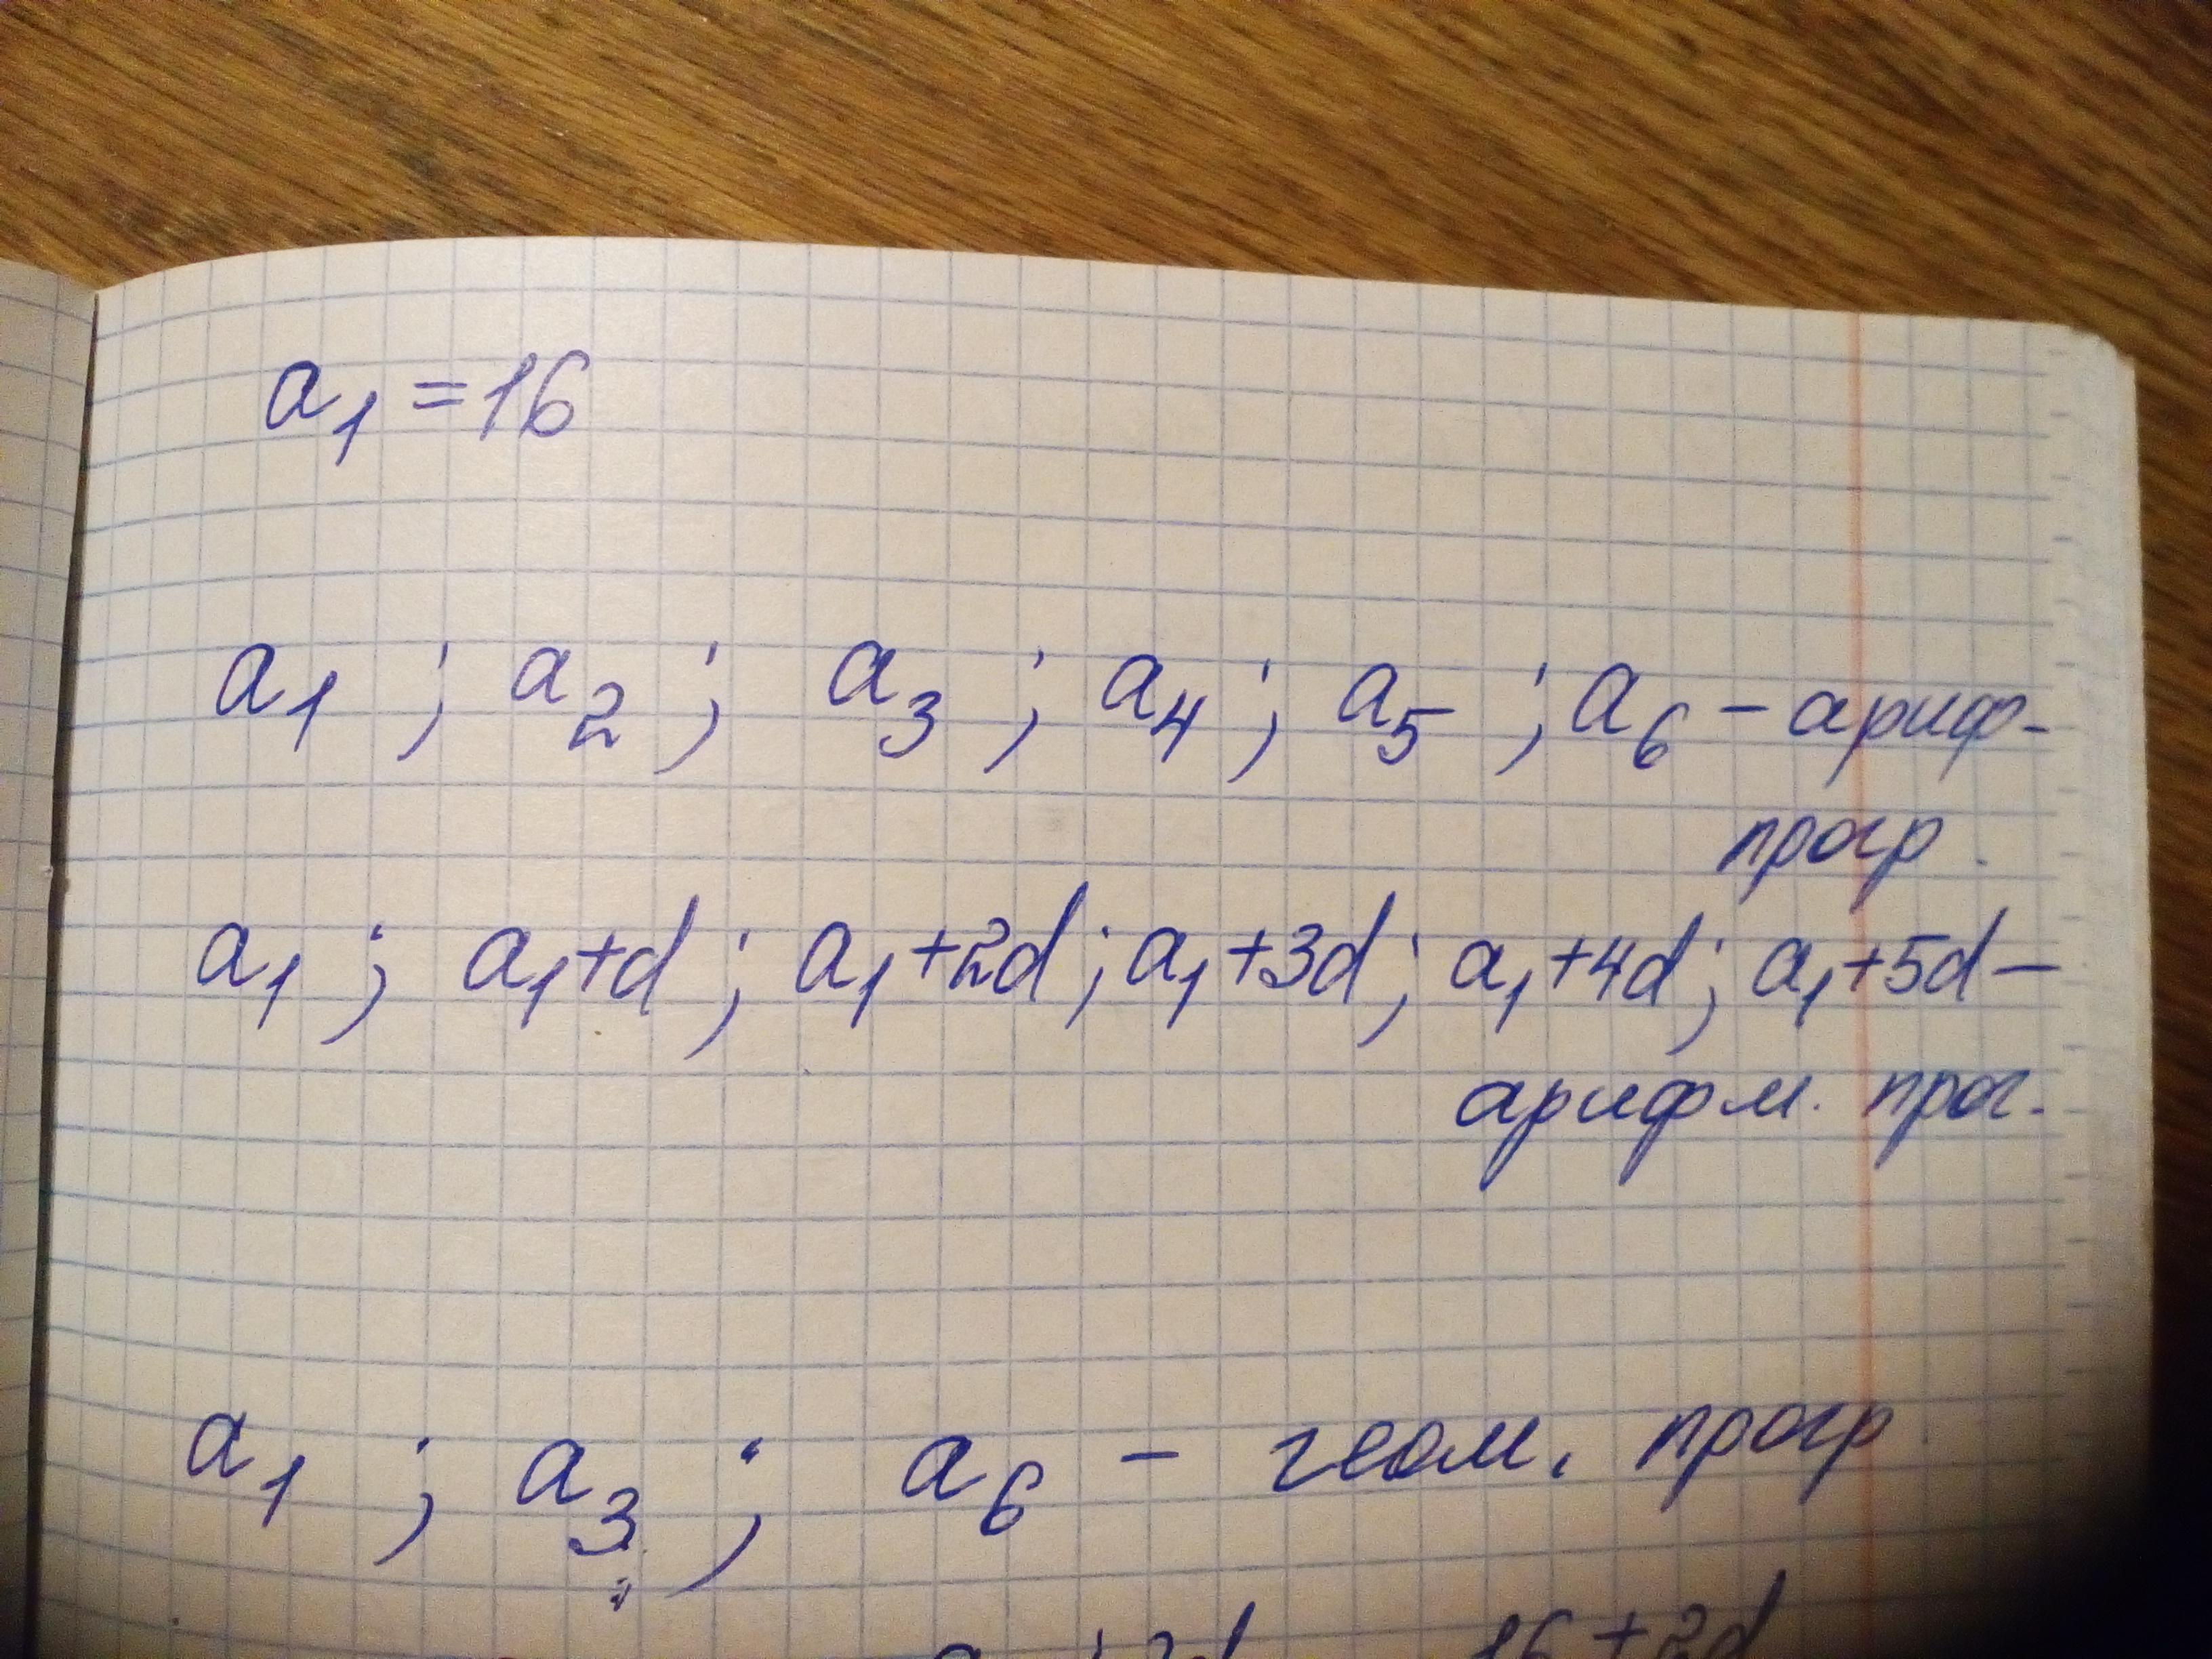 a₁ = 16
a₁ ; a₂ ; a₃ ; a₄ ; a₅ ; a₆ – ариф-
прогр.
a₁ ; a₁+d ; a₁+2d ; a₁+3d ; a₁+4d ; a₁+5d –
арифм. прог.
a₁ ; a₃ ; a₆ – геом. прогр
16+2d